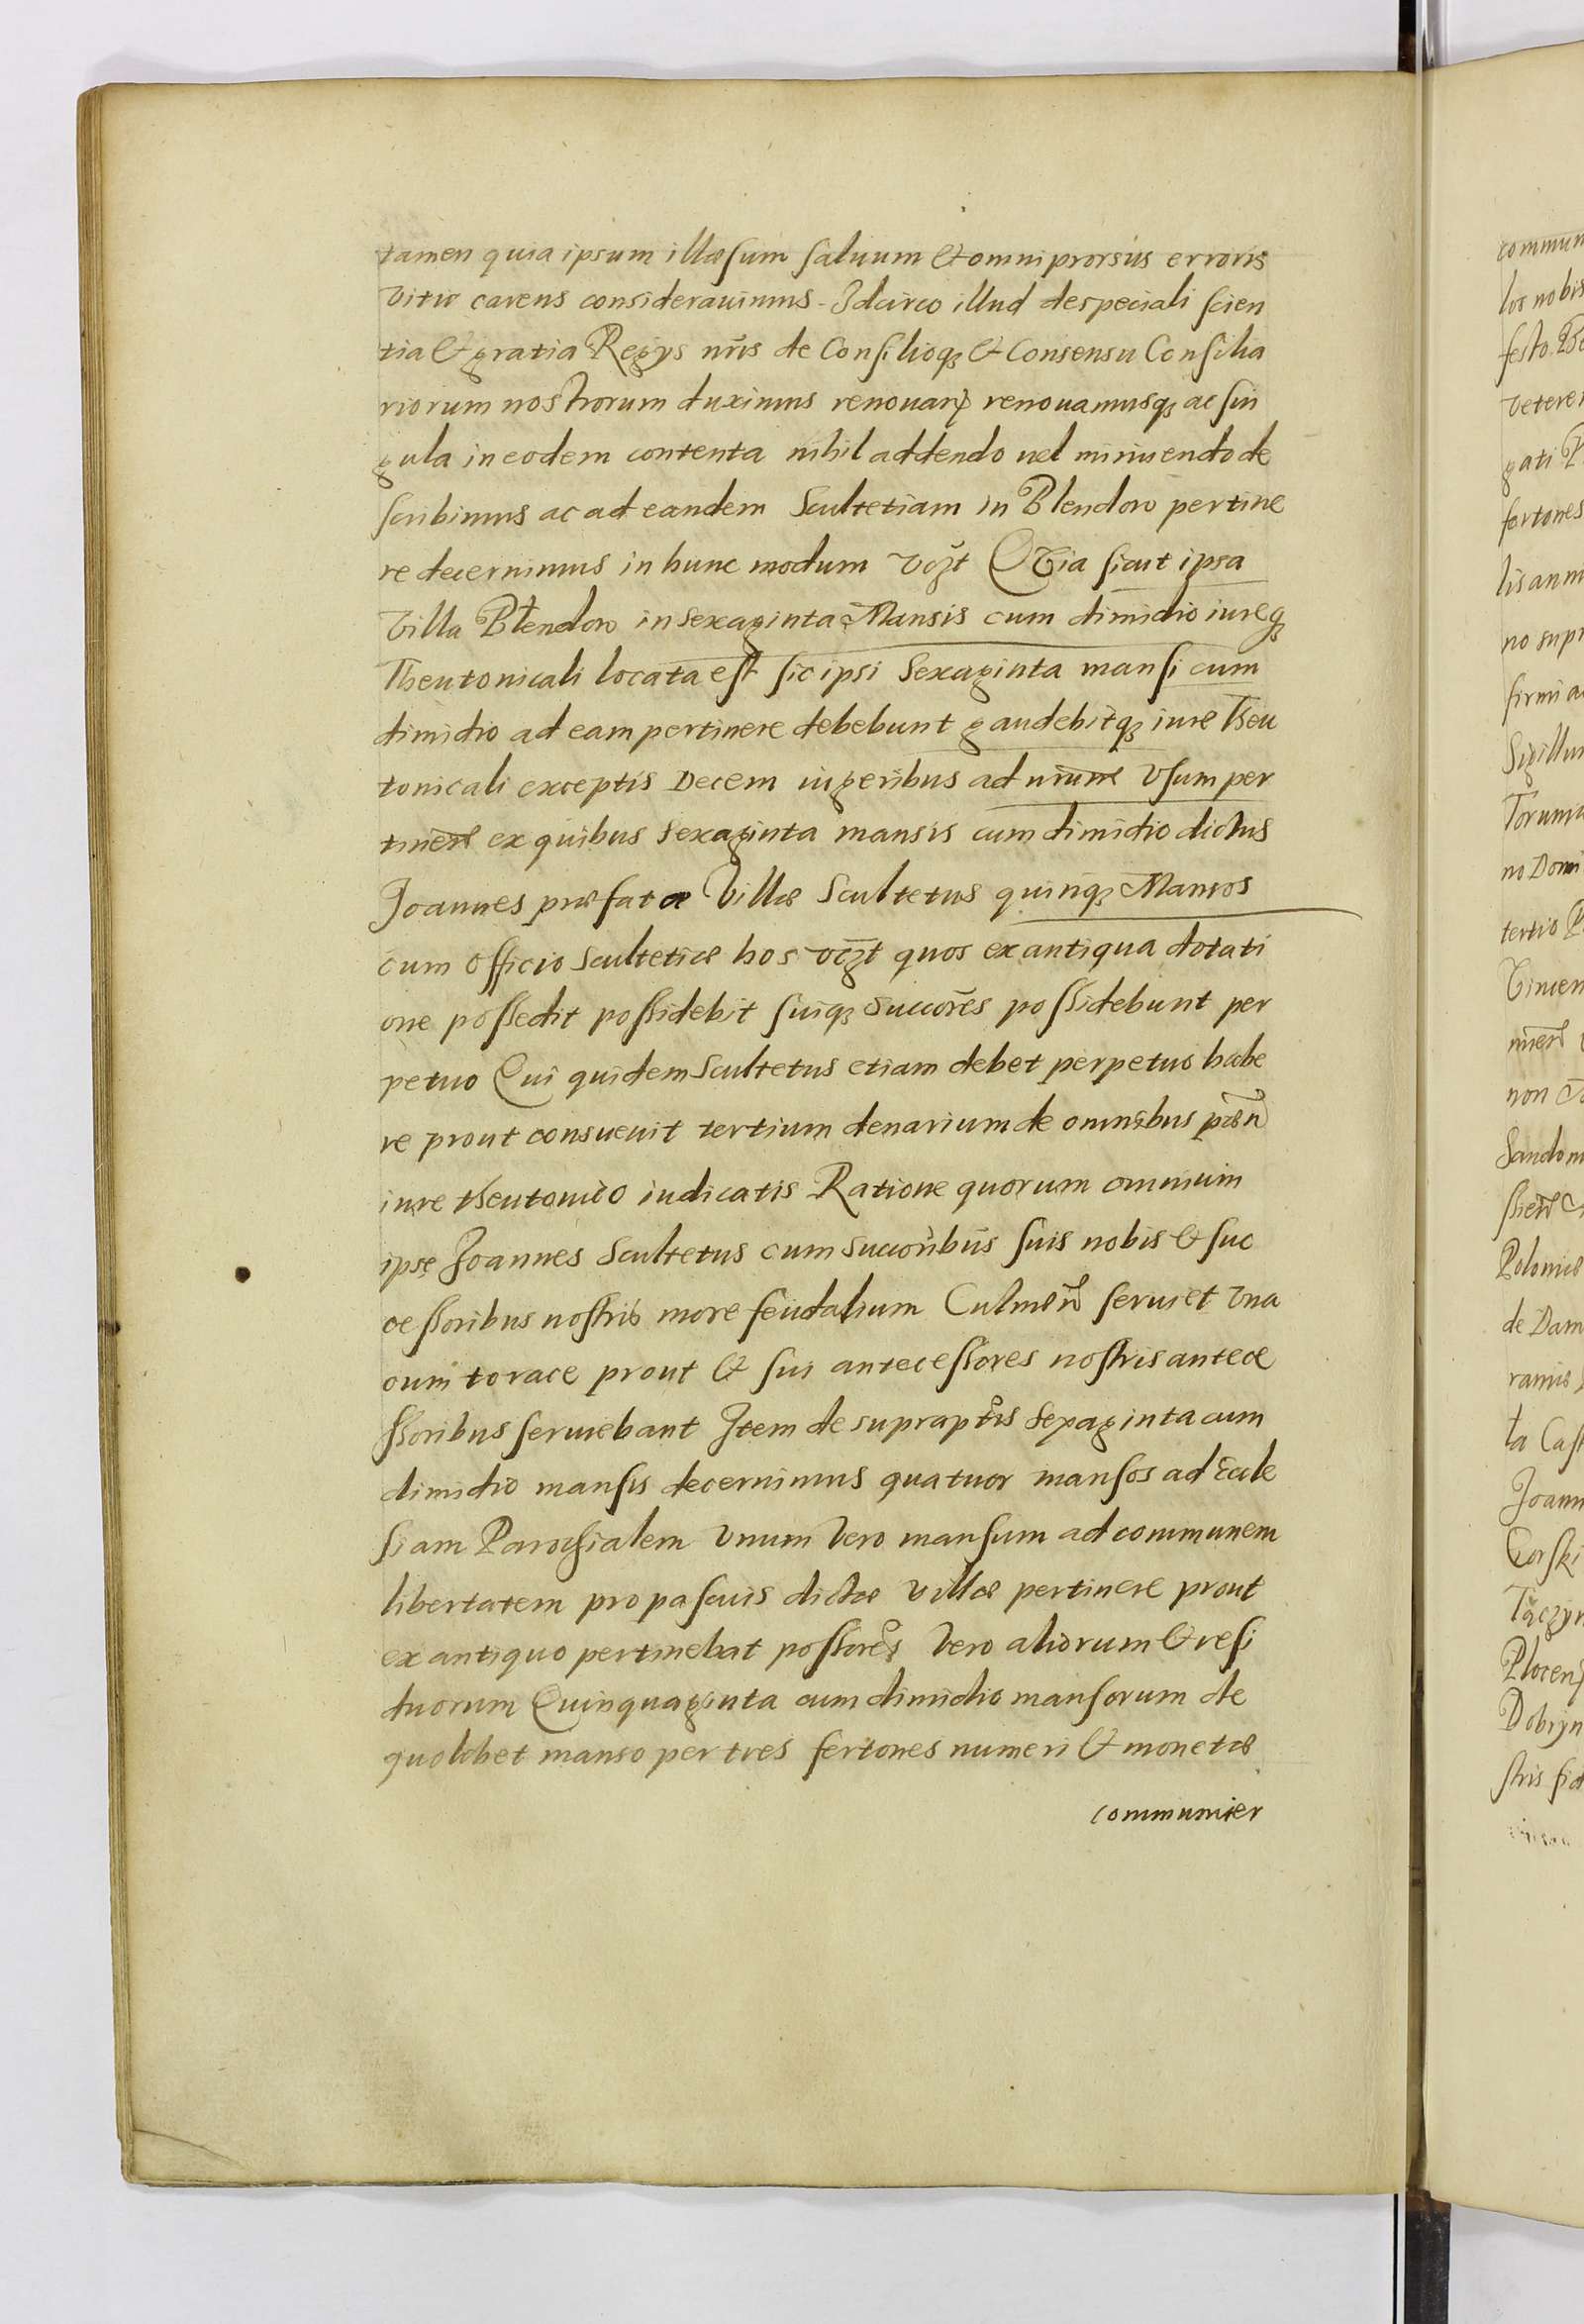 tamen quia ipsum illæsum saluum & omni prorsus erroris
vitio carens considerauimus. Idcirco illud de speciali scien
tia & gratia Regys nr̃is de Consilioq₃ & Consensu Consilia
riorum nostrorum duximus renouan̄ renouamusq₃ ac sin
gula in eodem contenta nihil addendo uel minuendo de
scribimus ac ad eandem Scultetiam in Blendow pertine
re decernimus in hunc modum vcz̃t Qvia sicut ipsa
Villa Blendow in sexaginta Mansis cum dimidio iureq₃
Theutonicali locata est sic ipsi Sexaginta mansi cum
dimidio ad eam pertinere debebunt gaudebitq₃ iure Theu
tonicali exceptis Decem iugeribus ad Vsum per
tinen̄ ex quibus sexaginta mansis cum dimidio dictus
Joannes præfatæ Villæ Scultetus quinq₃ Mansos
cum officio scultetiæ hos vcz̃t quos ex antiqua dotati
one possedit possidebit suiq₃ succor̃es possidebunt per
petuo Qui quidem Scultetus etiam debet perpetuo habe
re prout consueuit tertium denarium de omnibus pœn̄
iure theutonico iudicatis Ratione quorum omnium
ipse Joannes Scultetus cum succoribus suis nobis & suc
cessoribus nostris more feudalium Culmen̄ seruiet vna
cum torace prout & sui antecessores nostris antece
ssoribus seruiebant Item de suprapt̃is Sexaginta cum
dimidio mansis decernimus quatuor mansos ad Eccle
siam Parochialem vnum vero mansum ad communem
libertatem pro pascuis dictæ villæ pertinere prout
ex antiquo pertinebat possores̃ vero aliorum & resi
duorum Quinquaginta cum dimidio mansorum de
quolibet manso per tres fertones numeri & monetæ
communiter